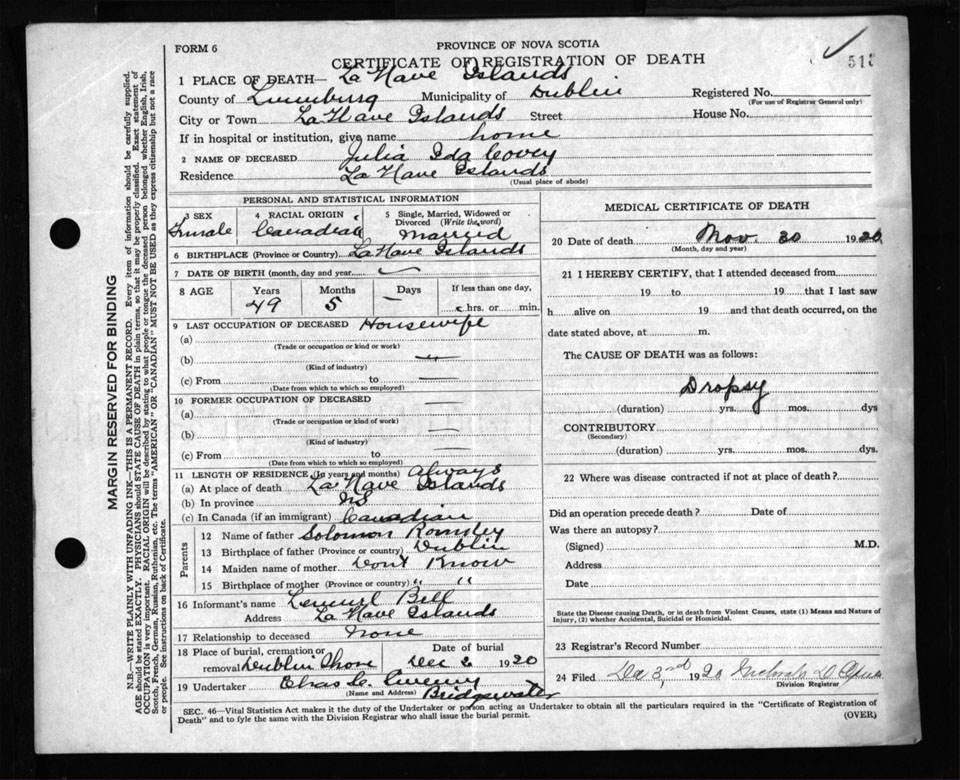 FORM 6
PROVINCE OF NOVA SCOTIA
CERTIFICATE OF REGISTRATION OF DEATH
51
1 PLACE OF DEATH— La Have Islands
County of Lunenburg Municipality of Dublin Registered No.
(For use of Registrar General only)
City or Town La Have Islands Street House No.
If in hospital or institution, give name home
2 NAME OF DECEASED Julia Ida Covey
Residence La Have Islands
(Usual place of abode)
PERSONAL AND STATISTICAL INFORMATION
3 SEX 4 RACIAL ORIGIN 5 Single, Married, Widowed or
Divorced (Write the word)
Female Canadian Married
6 BIRTHPLACE (Province or Country) La Have Islands
7 DATE OF BIRTH (month, day and year)
8 AGE Years Months Days If less than one day,
49 5 — hrs. or min.
9 LAST OCCUPATION OF DECEASED Housewife
(a)
(Trade or occupation or kind or work)
(b)
(Kind of industry)
(c) From to
(Date from which to which so employed)
10 FORMER OCCUPATION OF DECEASED
(a)
(Trade or occupation or kind of work
(b)
(Kind of industry)
(c) From to
(Date from which to which so employed)
11 LENGTH OF RESIDENCE (In years and months) always
(a) At place of death La Have Islands
(b) In province NS
(c) In Canada (if an immigrant) Canadian
Parents
12 Name of father Solomon
13 Birthplace of father (Province or country) Dublin
14 Maiden name of mother Dont Know
15 Birthplace of mother (Province or country) " "
16 Informant's name Lemuel Bell
Address La Have Islands
17 Relationship to deceased None
18 Place of burial, cremation or Date of burial
removal Dublin Shore Dec 2 1920
19 Undertaker Chas
(Name and Address) Bridgewater
MEDICAL CERTIFICATE OF DEATH
20 Date of death Nov. 30 1920
(Month, day and year)
21 I HEREBY CERTIFY, that I attended deceased from
19 to 19 that I last saw
h alive on 19 and that death occurred, on the
date stated above, at m.
The CAUSE OF DEATH was as follows:
Dropsy
(duration) yrs. mos. dys
CONTRIBUTORY
(Secondary)
(duration) yrs. mos. dys.
22 Where was disease contracted if not at place of death?
Did an operation precede death? Date of
Was there an autopsy?
(Signed) M.D.
Address
Date
State the Disease causing Death, or in death from Violent Causes, state (1) Means and Nature of
Injury, (2) whether Accidental, Suicidal or Homicidal.
23 Registrar's Record Number
24 Filed Dec 3rd 1920
Division Registrar
SEC. 46—Vital Statistics Act makes it the duty of the Undertaker or person acting as Undertaker to obtain all the particulars required in the "Certificate of Registration of
Death" and to fyle the same with the Division Registrar who shall issue the burial permit. (OVER)
MARGIN RESERVED FOR BINDING
N.B.—WRITE PLAINLY WITH UNFADING INK—THIS IS A PERMANENT RECORD. Every item of information should be carefully supplied.
AGE should be stated EXACTLY. PHYSICIANS should STATE CAUSE OF DEATH in plain terms, so that it may be properly classified. Exact statement of
OCCUPATION is very important. RACIAL ORIGIN will be described by stating to what people or tongue the deceased person belonged whether English, Irish,
Scotch, French, German, Russian, Ruthenian, etc. The terms "AMERICAN" OR "CANADIAN" MUST NOT BE USED as they express citizenship but not a race
or people. See instructions on back of Certificate.